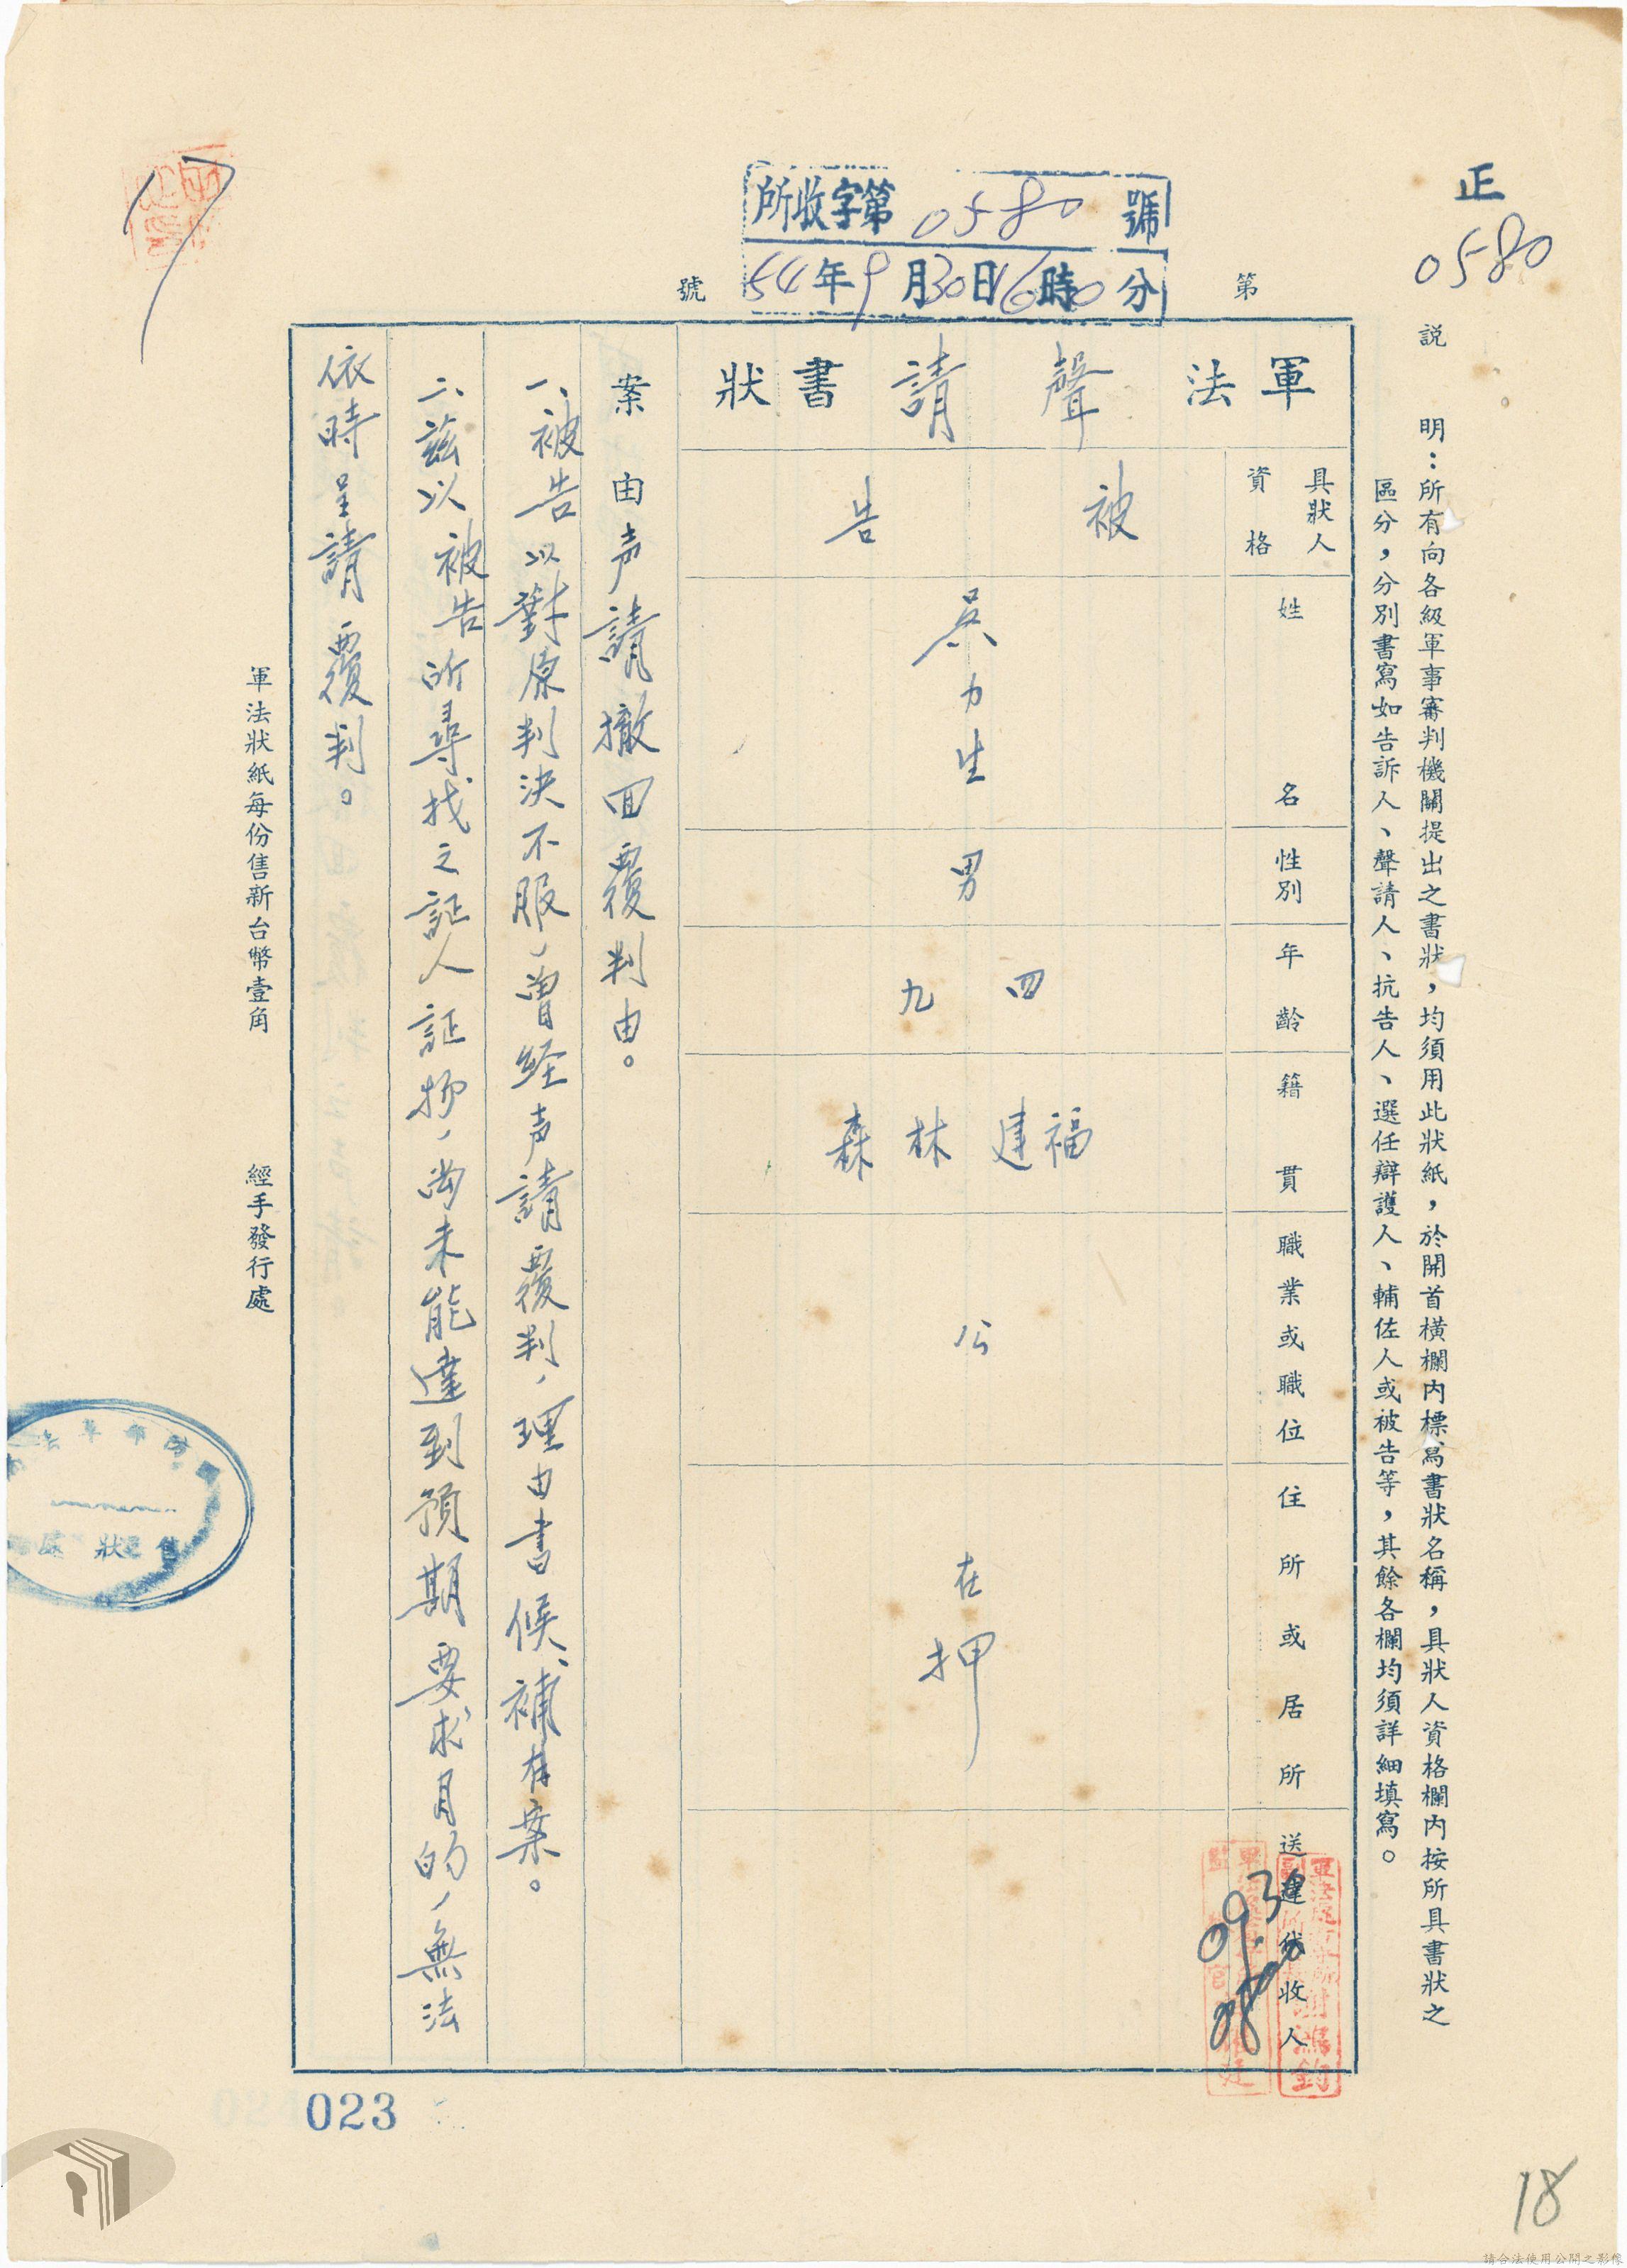 正
0580
説明：所有向各級軍事審判機關提出之書狀，均須用此狀紙，於開首橫欄內標寫書狀名稱，具狀人資格欄內按所具書狀之
區分，分別書寫如告訴人、聲請人、抗告人、選任辯護人、輔佐人或被告等，其餘各欄均須詳細填寫。
第
號
所收字第0580號
54年9月30日16時 分
軍法聲請書狀
具狀人資格
被告
姓名
吳力生
性別
男
年齡
四九
籍貫
福建林森
職業或職位
公
住所或居所
在押
送達代收人
案由声請撤回覆判由。
一、被告以對原判決不服，曾経声請覆判，理由書候補有案。
二、茲以被告所尋找之証人証物，尚未能達到預期要求目的，無法
依時呈請覆判。
軍法狀紙每份售新台幣壹角
經手發行處
售狀處
17
023
18
請合法使用公開之影像